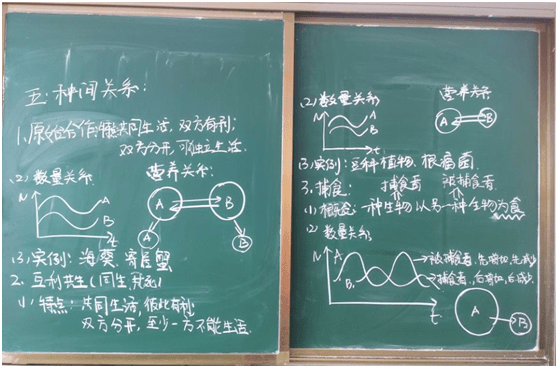 五.种间关系:
1.原始合作:共同生活,双方有利;
双方分开,可独立生活.
(2)数量关系 营养关系:
N A B t
A B
A B
(3)实例:海葵 寄居蟹
2.互利共生(同生,共死)
(1)特点:共同生活,彼此有利;
双方分开,至少一方不能生活.
(2)数量关系 营养关系
N A B t
A B
(3)实例:豆科植物,根瘤菌.
3.捕食: 捕食者 被捕食者
(1)概念:一种生物以另一种生物为食
(2)数量关系
N A B t
被捕食者,先增加,先减少
捕食者,后增加,后减少.
A B